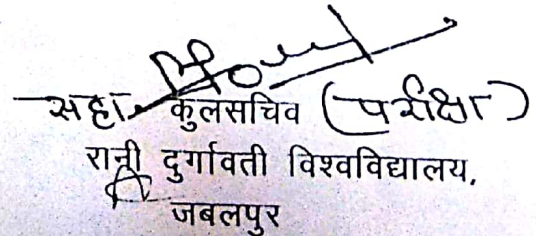 सहा. कुलसचिव (परीक्षा)
रानी दुर्गावती विश्वविद्यालय,
जबलपुर